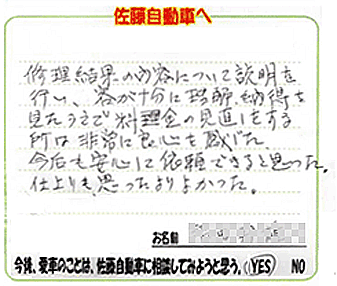 佐藤自動車へ
修理結果の内容について説明を
行い、客が十分に理解、納得を
見たうえで料理金の見直しをする
所は非常に良心を感じた。
今后も安心に依頼できると思った。
仕上りも思ったりよかった。
お名前
今後、愛車のことは、佐藤自動車に相談してみようと思う。(YES) NO